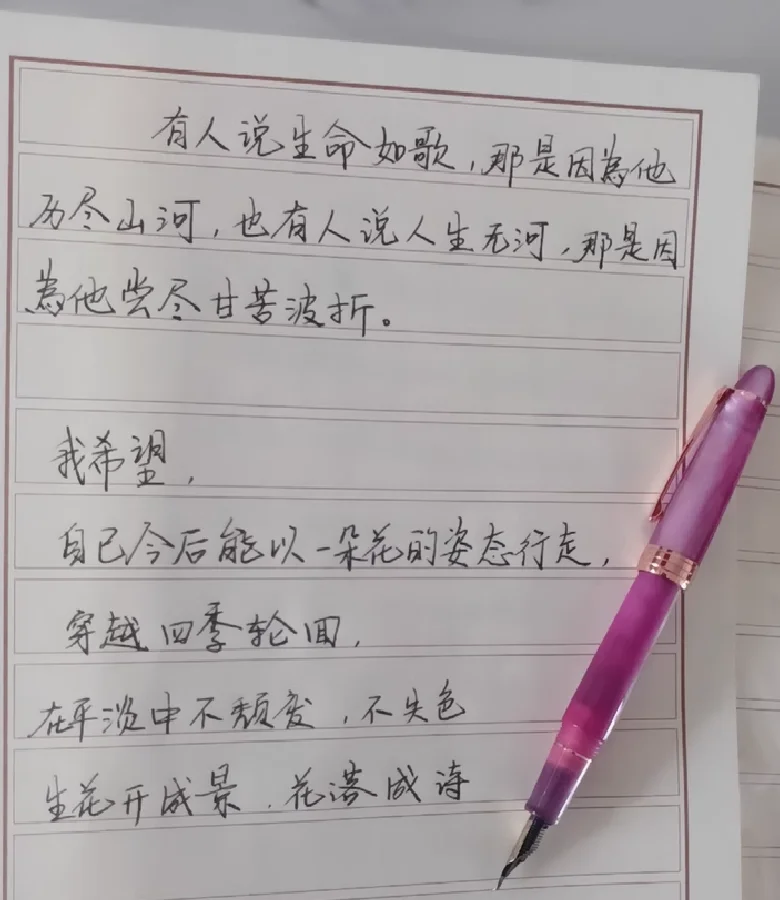 有人说生命如歌,那是因為他
历尽山河,也有人说人生无河,那是因
為他尝尽甘苦波折。
我希望,
自已今后能以一朵花的姿态行走,
穿越四季轮回,
在平淡中不颓废,不失色
生花开成景.花落成诗